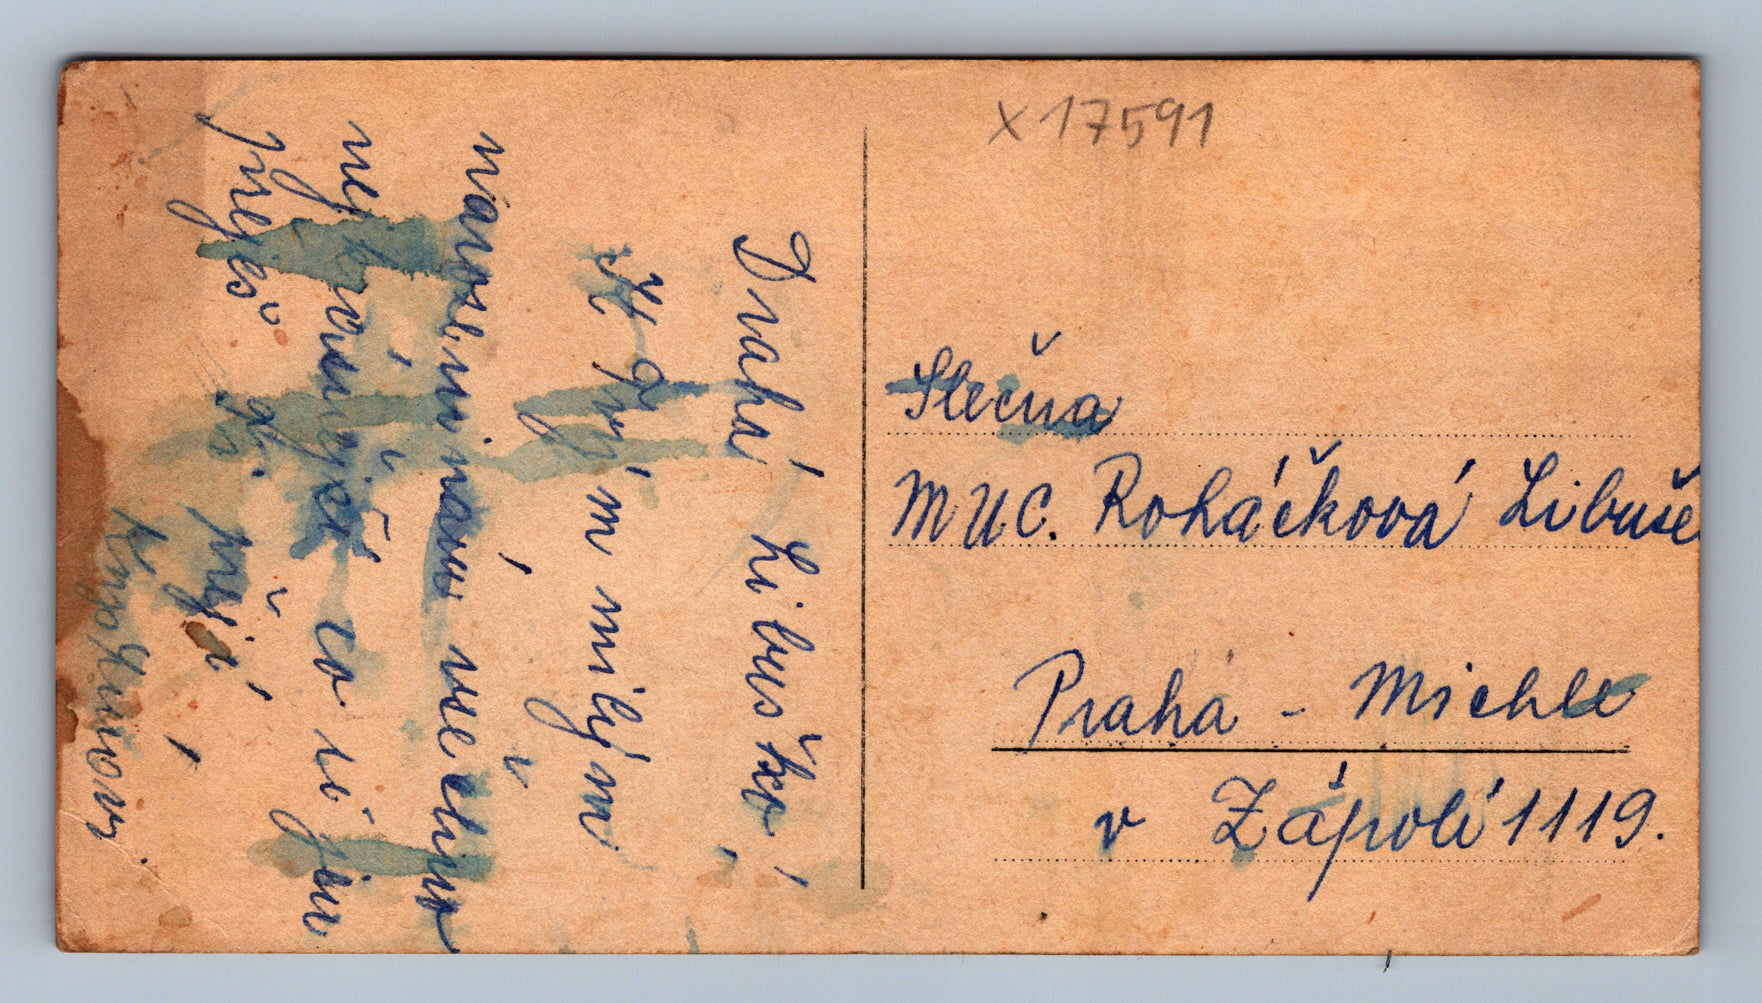 Drahá Libuško,
K Tvým milým
narozeninám všechno
nejkrásnější co si jen
přeješ
přejí
x 17591
Slečna
MUC. Roháčková Libuše
Praha - Michle
v Zápolí 1119.